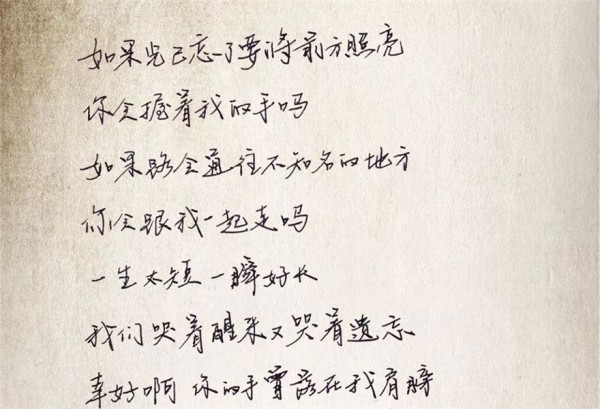 如果光已忘了要将前方照亮
你会握着我的手吗
如果路会通往不知名的地方
你会跟我一起走吗
一生太短 一瞬好长
我们哭着醒来又哭着遗忘
幸好啊 你的手曾落在我肩膀